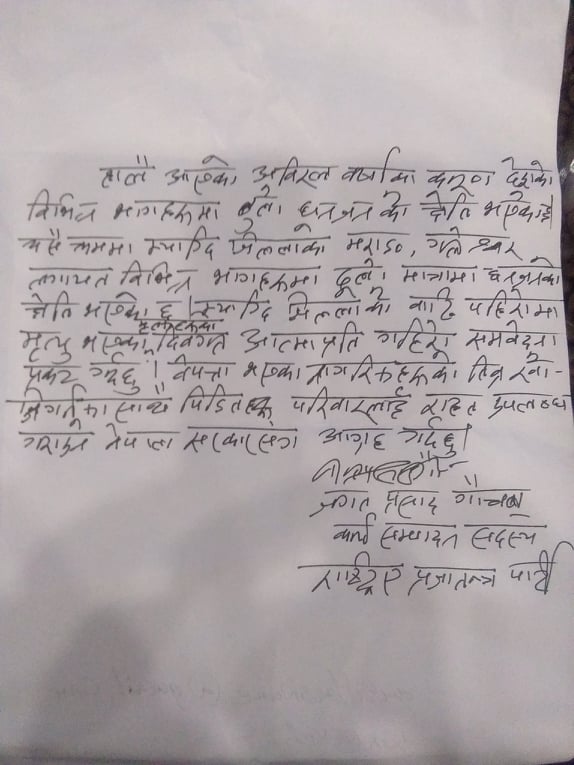 हालै आएको अविरल वर्षाका कारण देशको
विभिन्न भागहरूमा ठुलो धनजनको क्षेति भएको छ।
यसै क्रममा म्याग्दि जिल्लाको मराङ, गलेश्वर
लगायत विभिन्न भागहरूमा ठुलो मात्रामा धनजनको
क्षेति भएको छ। म्याग्दि जिल्लाको बाढि पहिरोमा
मृत्यु भएका दिवंगत आत्मा प्रति गहिरो समवेदना
प्रकट गर्दछु। वेपत्ता भएका नागरिकहरूको तिव्र खो-
जिगरिका साथै पिडितहरू परिवारलाई राहत उपलब्ध
गराउन नेपाल सरकारसंग आग्रह गर्दछु।
प्रसाद गौचन
कार्य सम्पादन सदस्य
राष्ट्रिय प्रजातन्त्र पार्टी